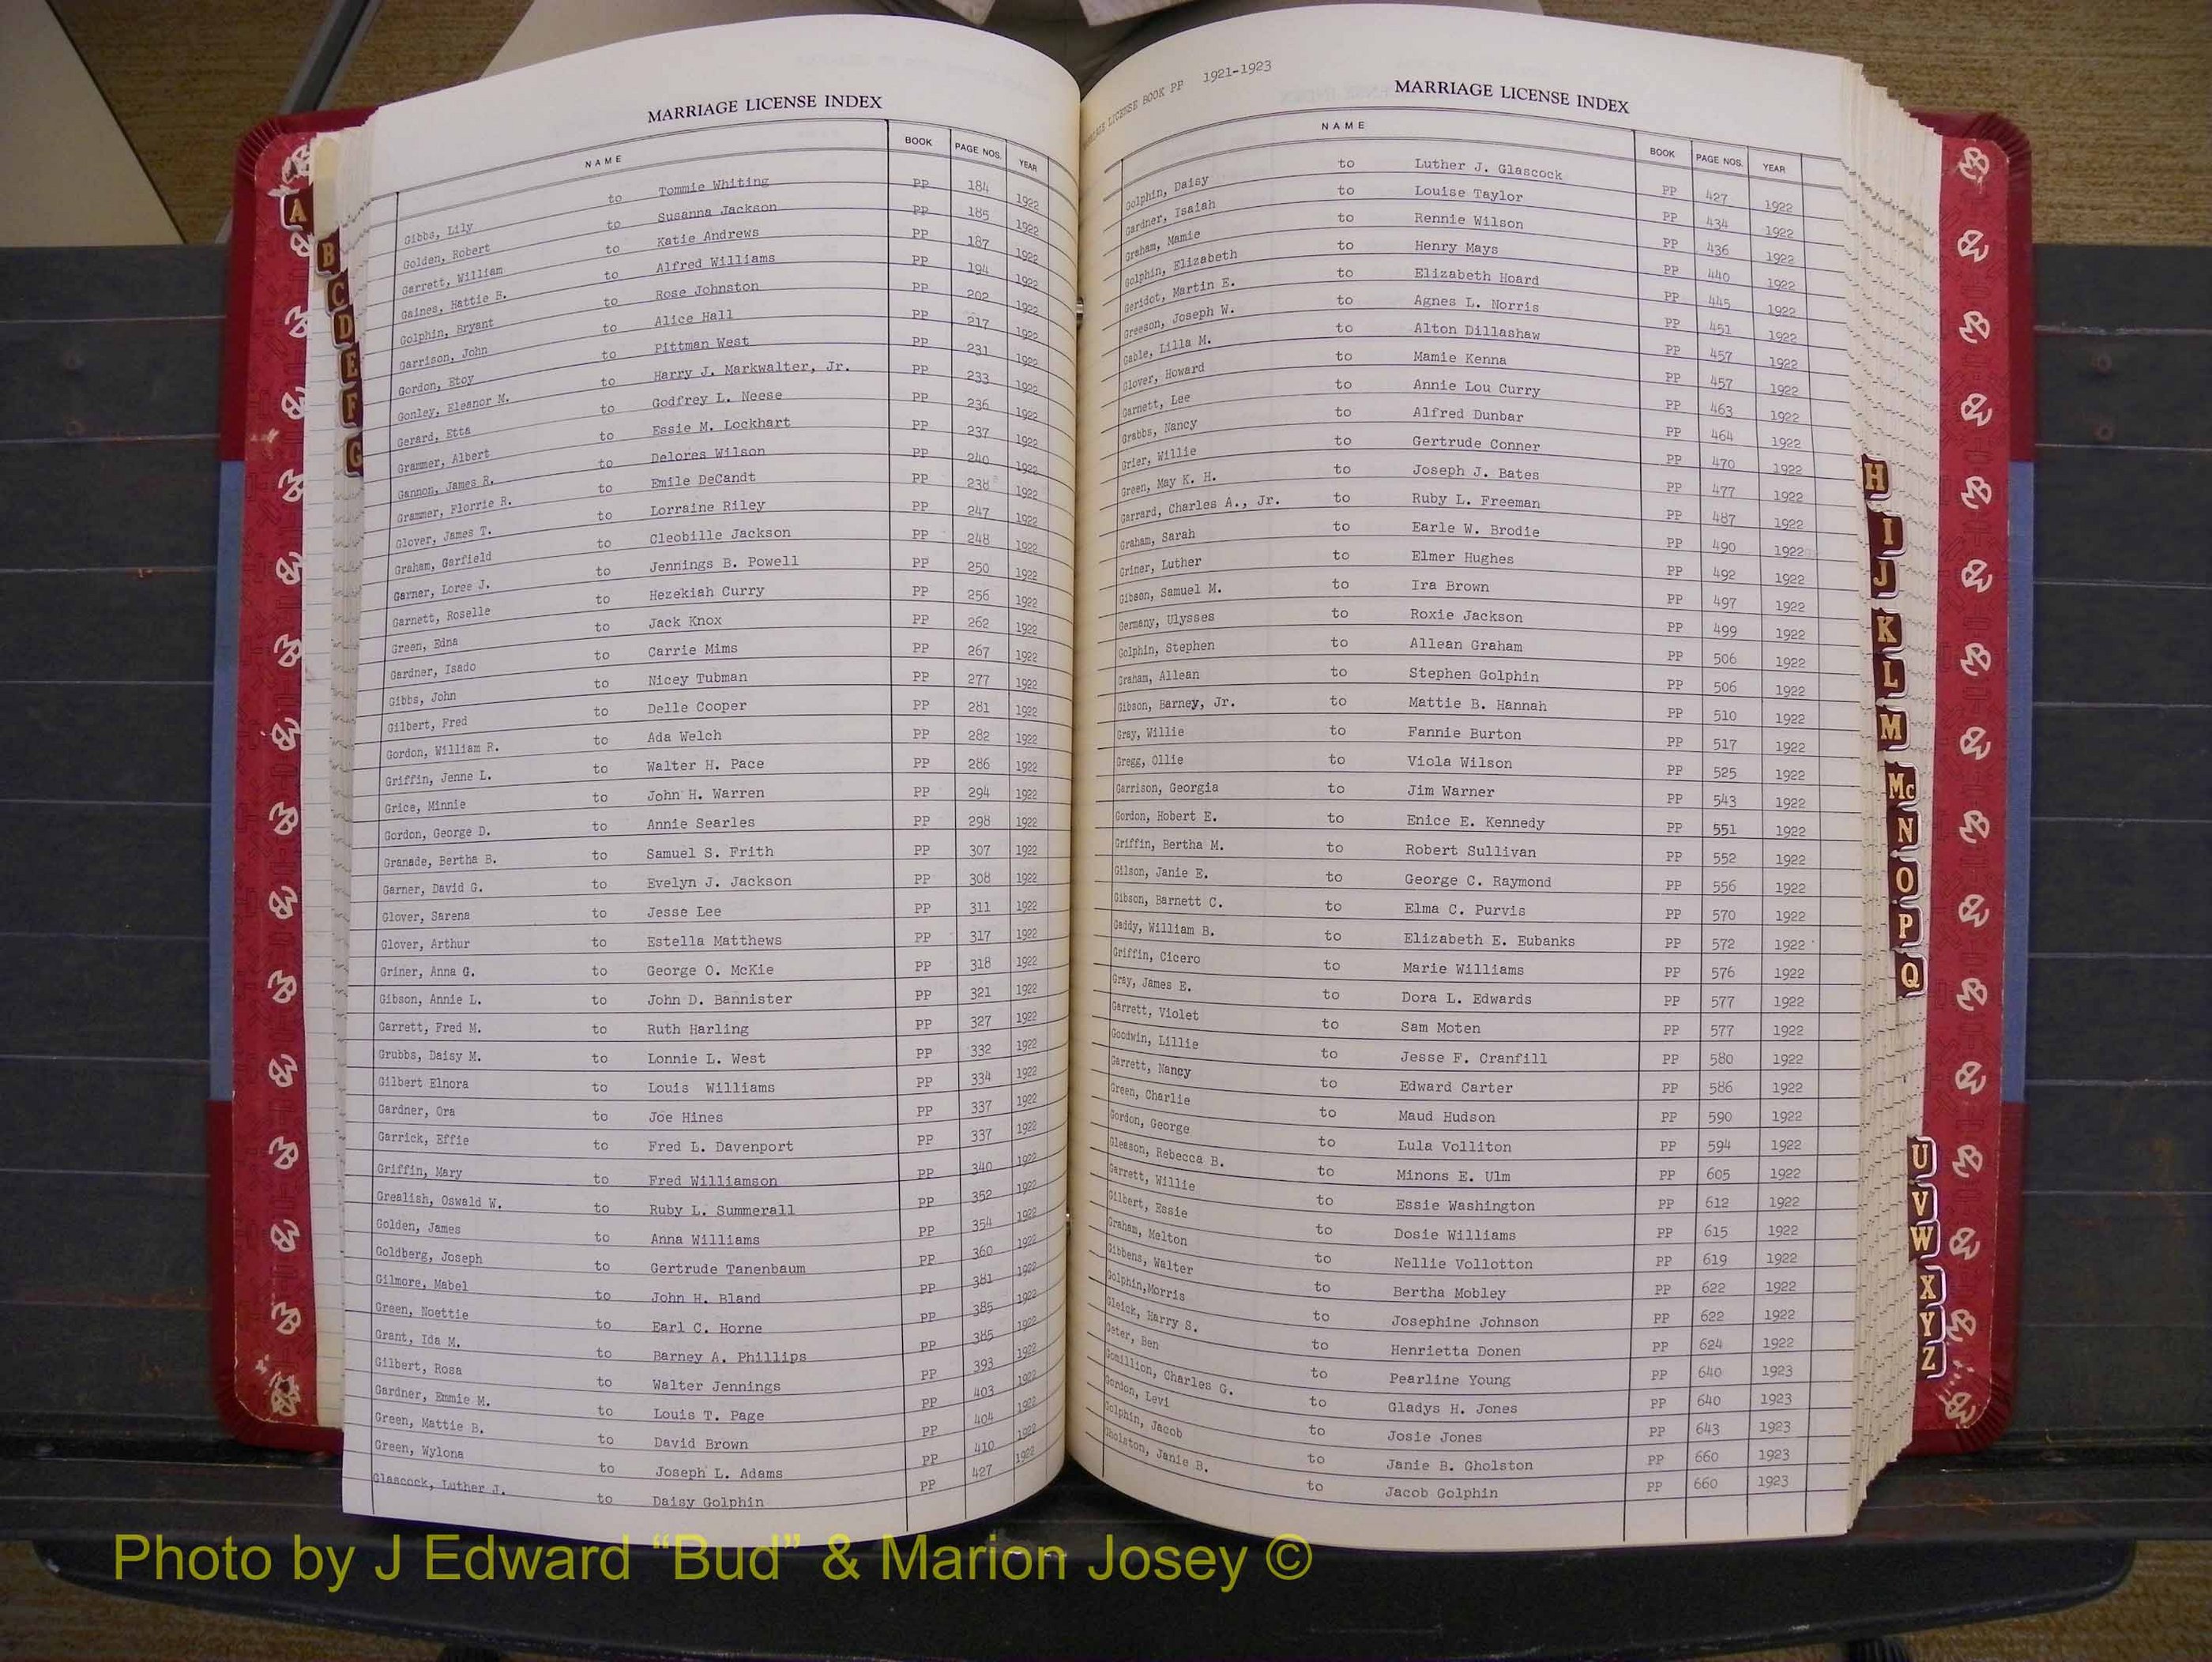 MARRIAGE LICENSE INDEX
NAME BOOK PAGE NOS. YEAR
Gibbs, Lily to Tommie Whiting PP 184 1922
Golden, Robert to Susanna Jackson PP 185 1922
Garrett, William to Katie Andrews PP 187 1922
Gaines, Hattie B. to Alfred Williams PP 194 1922
Golphin, Bryant to Rose Johnston PP 202 1922
Garrison, John to Alice Hall PP 217 1922
Gordon, Etoy to Pittman West PP 231 1922
Gonley, Eleanor M. to Harry J. Markwalter, Jr. PP 233 1922
Gerard, Etta to Godfrey L. Neese PP 236 1922
Grammer, Albert to Essie M. Lockhart PP 237 1922
Gannon, James R. to Delores Wilson PP 240 1922
Grammer, Florrie R. to Emile DeCandt PP 238 1922
Glover, James T. to Lorraine Riley PP 247 1922
Graham, Garfield to Cleobille Jackson PP 248 1922
Garner, Loree J. to Jennings B. Powell PP 250 1922
Garnett, Roselle to Hezekiah Curry PP 256 1922
Green, Edna to Jack Knox PP 262 1922
Gardner, Isado to Carrie Mims PP 267 1922
Gibbs, John to Nicey Tubman PP 277 1922
Gilbert, Fred to Delle Cooper PP 281 1922
Gordon, William R. to Ada Welch PP 282 1922
Griffin, Jenne L. to Walter H. Pace PP 286 1922
Grice, Minnie to John H. Warren PP 294 1922
Gordon, George D. to Annie Searles PP 298 1922
Granade, Bertha B. to Samuel S. Frith PP 307 1922
Garner, David G. to Evelyn J. Jackson PP 308 1922
Glover, Sarena to Jesse Lee PP 311 1922
Glover, Arthur to Estella Matthews PP 317 1922
Griner, Anna G. to George O. McKie PP 318 1922
Gibson, Annie L. to John D. Bannister PP 321 1922
Garrett, Fred M. to Ruth Harling PP 327 1922
Grubbs, Daisy M. to Lonnie L. West PP 332 1922
Gilbert Elnora to Louis Williams PP 334 1922
Gardner, Ora to Joe Hines PP 337 1922
Garrick, Effie to Fred L. Davenport PP 337 1922
Griffin, Mary to Fred Williamson PP 340 1922
Grealish, Oswald W. to Ruby L. Summerall PP 352 1922
Golden, James to Anna Williams PP 354 1922
Goldberg, Joseph to Gertrude Tanenbaum PP 360 1922
Gilmore, Mabel to John H. Bland PP 381 1922
Green, Noettie to Earl C. Horne PP 385 1922
Grant, Ida M. to Barney A. Phillips PP 385 1922
Gilbert, Rosa to Walter Jennings PP 393 1922
Gardner, Emmie M. to Louis T. Page PP 403 1922
Green, Mattie B. to David Brown PP 404 1922
Green, Wylona to Joseph L. Adams PP 410 1922
Glascock, Luther J. to Daisy Golphin PP 427 1922
LICENSE BOOK PP 1921-1923
MARRIAGE LICENSE INDEX
NAME BOOK PAGE NOS. YEAR
Golphin, Daisy to Luther J. Glascock PP 427 1922
Gardner, Isaiah to Louise Taylor PP 434 1922
Graham, Mamie to Rennie Wilson PP 436 1922
Golphin, Elizabeth to Henry Mays PP 440 1922
Geridot, Martin E. to Elizabeth Hoard PP 445 1922
Greeson, Joseph W. to Agnes L. Norris PP 451 1922
Gable, Lilla M. to Alton Dillashaw PP 457 1922
Glover, Howard to Mamie Kenna PP 457 1922
Garnett, Lee to Annie Lou Curry PP 463 1922
Grabbs, Nancy to Alfred Dunbar PP 464 1922
Grier, Willie to Gertrude Conner PP 470 1922
Green, May K. H. to Joseph J. Bates PP 477 1922
Garrard, Charles A., Jr. to Ruby L. Freeman PP 487 1922
Graham, Sarah to Earle W. Brodie PP 490 1922
Griner, Luther to Elmer Hughes PP 492 1922
Gibson, Samuel M. to Ira Brown PP 497 1922
Germany, Ulysses to Roxie Jackson PP 499 1922
Golphin, Stephen to Allean Graham PP 506 1922
Graham, Allean to Stephen Golphin PP 506 1922
Gibson, Barney, Jr. to Mattie B. Hannah PP 510 1922
Gray, Willie to Fannie Burton PP 517 1922
Gregg, Ollie to Viola Wilson PP 525 1922
Garrison, Georgia to Jim Warner PP 543 1922
Gordon, Hobert E. to Enice E. Kennedy PP 551 1922
Griffin, Bertha M. to Robert Sullivan PP 552 1922
Gilson, Janie E. to George C. Raymond PP 556 1922
Gibson, Barnett C. to Elma C. Purvis PP 570 1922
Gaddy, William B. to Elizabeth E. Eubanks PP 572 1922
Griffin, Cicero to Marie Williams PP 576 1922
Gray, James E. to Dora L. Edwards PP 577 1922
Garrett, Violet to Sam Moten PP 577 1922
Goodwin, Lillie to Jesse F. Cranfill PP 580 1922
Garrett, Nancy to Edward Carter PP 586 1922
Green, Charlie to Maud Hudson PP 590 1922
Gordon, George to Lula Volliton PP 594 1922
Gleason, Rebecca B. to Minons E. Ulm PP 605 1922
Garrett, Willie to Essie Washington PP 612 1922
Gilbert, Essie to Dosie Williams PP 615 1922
Graham, Melton to Nellie Vollotton PP 619 1922
Gibbens, Walter to Bertha Mobley PP 622 1922
Golphin,Morris to Josephine Johnson PP 622 1922
Gleick, Harry S. to Henrietta Donen PP 624 1922
Geter, Ben to Pearline Young PP 640 1923
Gomillion, Charles G. to Gladys H. Jones PP 640 1923
Gordon, Levi to Josie Jones PP 643 1923
Golphin, Jacob to Janie B. Gholston PP 660 1923
Gholston, Janie B. to Jacob Golphin PP 660 1923
A
B
C
D
E
F
G
H
I
J
K
L
M
Mc
N
O
P
Q
U
V
W
X
Y
Z
Photo by J Edward “Bud” & Marion Josey ©